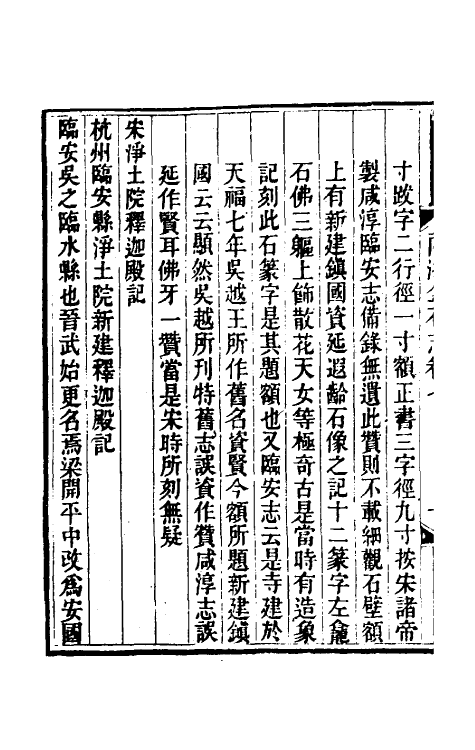 寸跋字二行徑一寸額正書三字徑九寸按宋諸帝
製咸淳臨安志備錄無遺此贊則不載細觀石壁額
上有新建鎮國資延遐齡石像之記十二篆字左龕
石佛三軀上飾散花天女等極奇古是當時有造象
記刻此石篆字是其題額也又臨安志云是寺建於
天福七年吳越王所作舊名資賢今額所題新建鎮
國云云顯然吳越所刊特舊志誤資作贊咸淳志誤
延作賢耳佛牙一贊當是宋時所刻無疑
宋淨土院釋迦殿記
杭州臨安縣淨土院新建釋迦殿記
臨安吳之臨水縣也晉武始更名焉梁開平中改爲安國